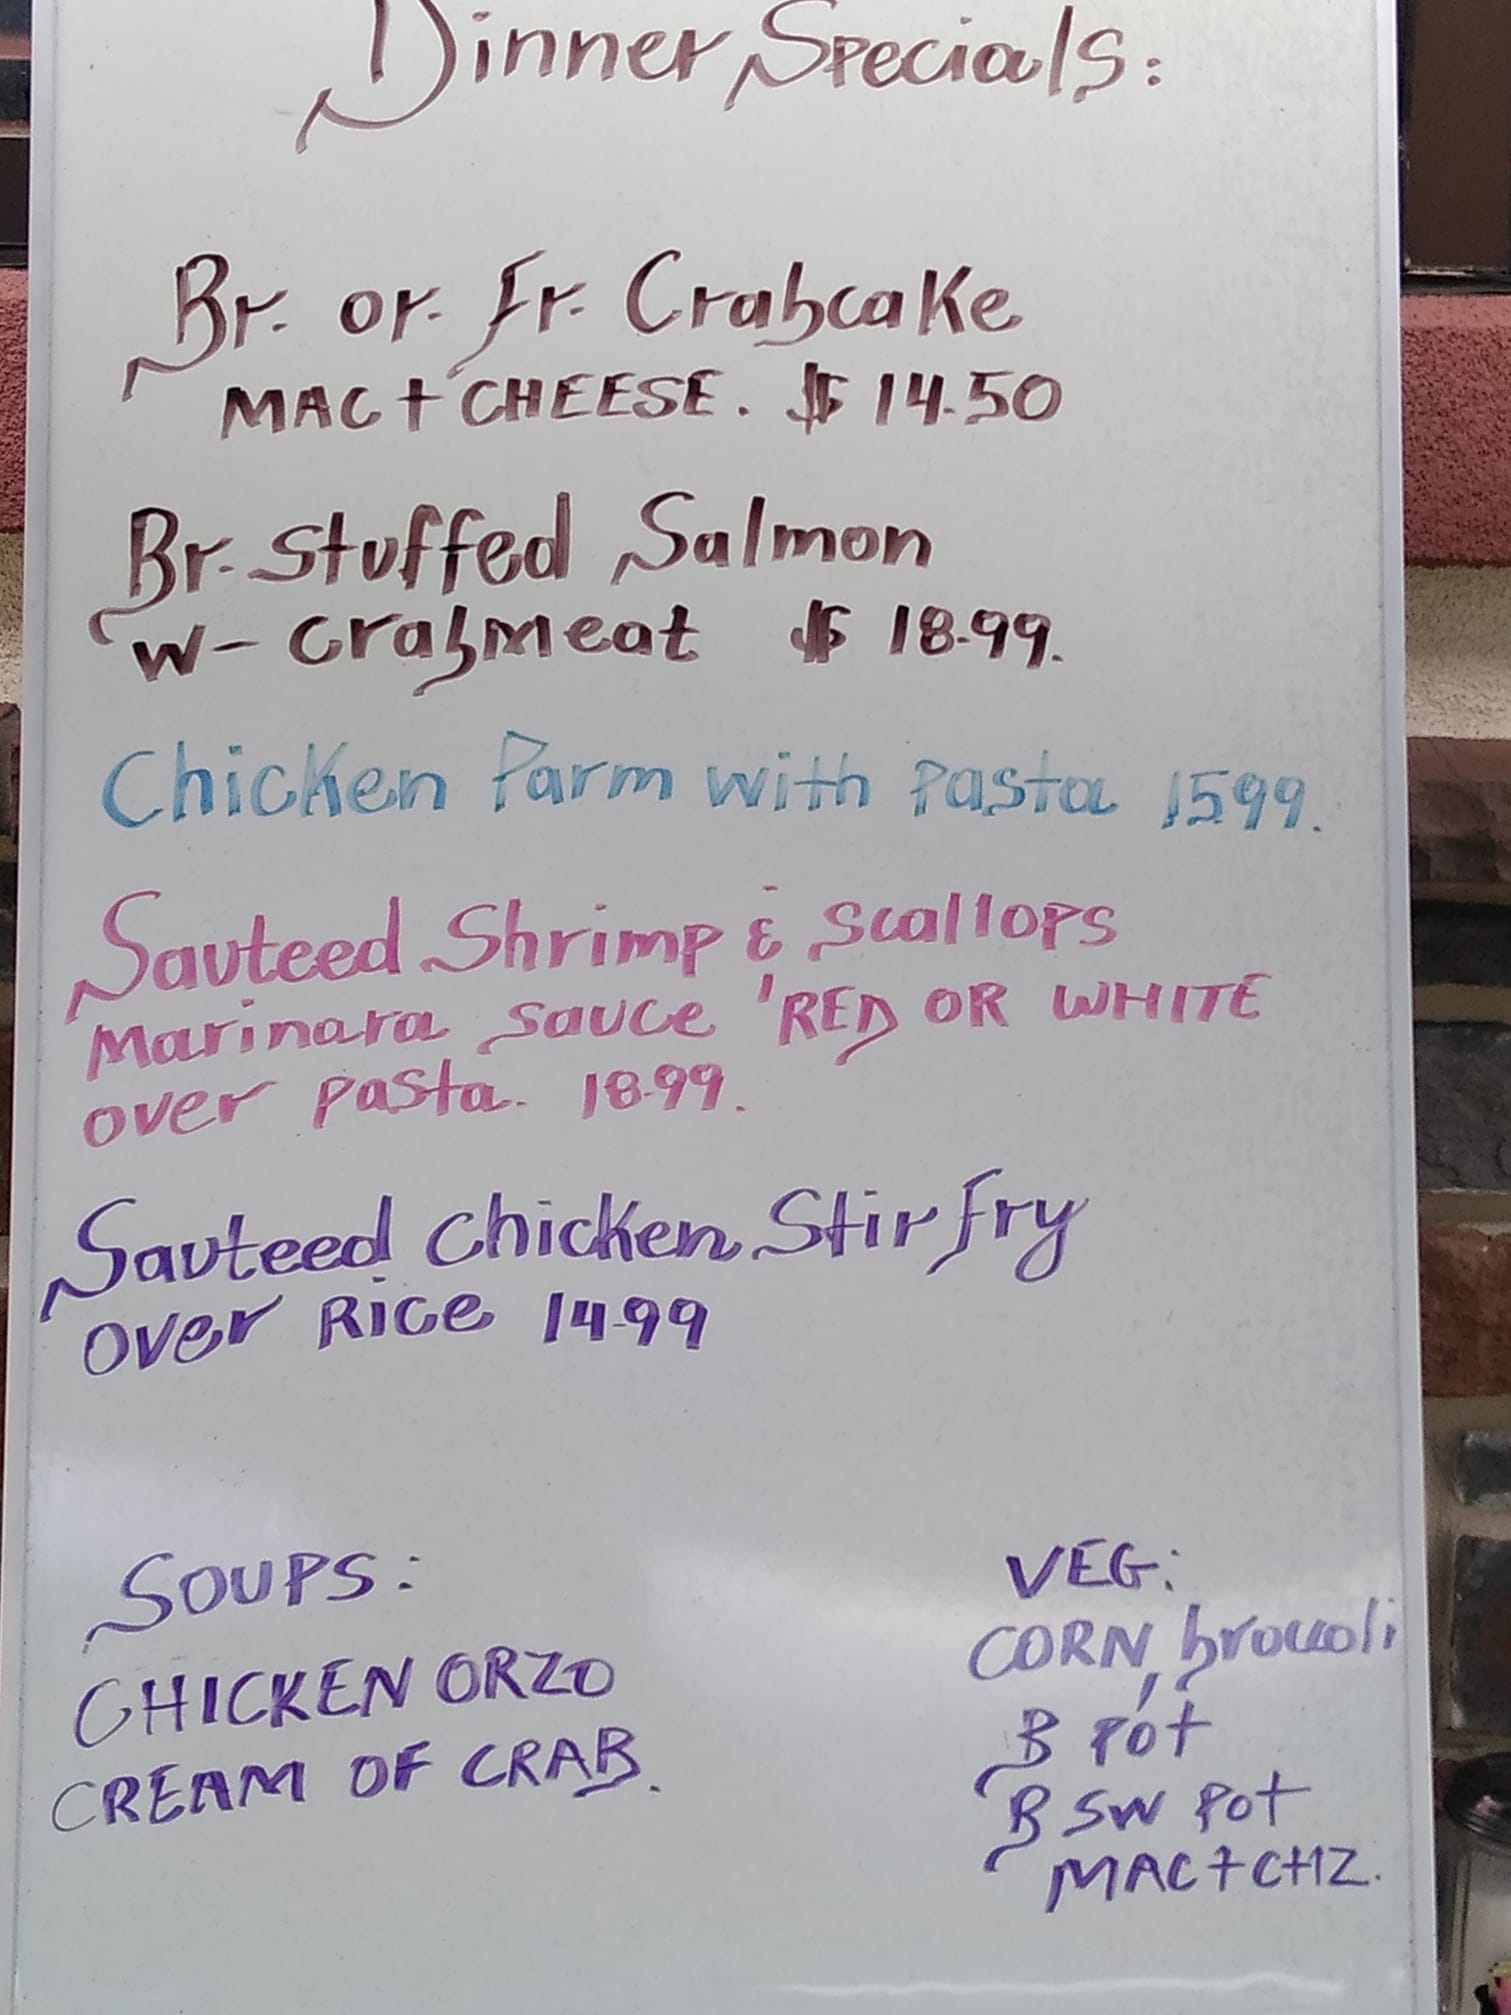 Dinner Specials:
Br. or. Fr. Crabcake
MAC + CHEESE. $ 14.50
Br. Stuffed Salmon
w- crabmeat $ 18.99.
Chicken Parm with Pasta 15.99.
Sauteed Shrimp & Scallops
Marinara sauce 'RED OR WHITE
over Pasta. 18.99.
Sauteed Chicken Stir Fry
over Rice 14.99
SOUPS:
CHICKEN ORZO
CREAM OF CRAB.
VEG:
CORN, broccoli
B POT
B SW POT
MAC + CHZ.